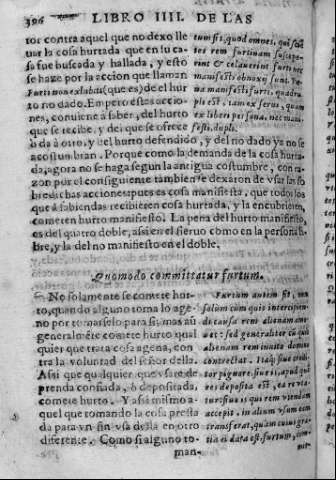 396 LIBRO IIII. DE LAS
tor contra aquel que no dexo lle
uar la cosa hurtada que en su ca
sa fue buscada y hallada, y esto
se haze por la accion que llaman
Furti non exhibiti (que es) del hur
to no dado. Empero estas accio-
nes, conuiene a saber, del hurto
que se recibe, y del que se ofrece
o da a otro, y del hurto defendido, y del no dado ya no se
acostumbran. Porque como la demanda de la cosa hurta-
da, agora no se haga segun la antigua costumbre, con ra-
zon por el consiguiente tambien se dexaron de vsar las so
bredichas acciones pues es cosa manifiesta, que todos los
que a sabiendas recibieren cosa hurtada, y la encubrieren,
cometen hurto manifiesto. La pena del hurto manifiesto,
es del quatro doble, assi en el sieruo como en la persona li-
bre, y la del no manifiesto en el doble.
tum sit, quod omnes, qui scientes
rem furtiuam suscepe-
rint & celauerint furti nec
manifesti obnoxij sunt. Pœ-
na manifesti furti, quadru-
pli est, tam ex serui, quam
ex liberi persona, nec mani-
festi, dupli.
Quomodo committatur furtum.
No solamente se comete hur-
to, quando alguno toma lo age-
no por tomarselo para si, mas aun
generalmẽte comete hurto qual
quier que trata cosa agena, con
tra la voluntad del señor della.
Assi que qualquier que vsare de
prenda confiada, o depositada,
comete hurto. Y assi mismo a-
quel que tomando la cosa presta
da para vn fin vsa della en otro
diferente. Como si alguno to-
man-
Furtum autem fit, non
solum cum quis intercipien-
di causa rem alienam amo-
uet: sed generaliter cũ quis
alienam rem inuito domino
contrectat. Itaq; siue credi-
tor pignore, siue is, apud quem
res deposita est, ea re vta-
tur: siue is qui rem vtendam
accepit, in alium vsum eam
transferat, quam cuius gra-
tia ei data est: furtum, com-
mit